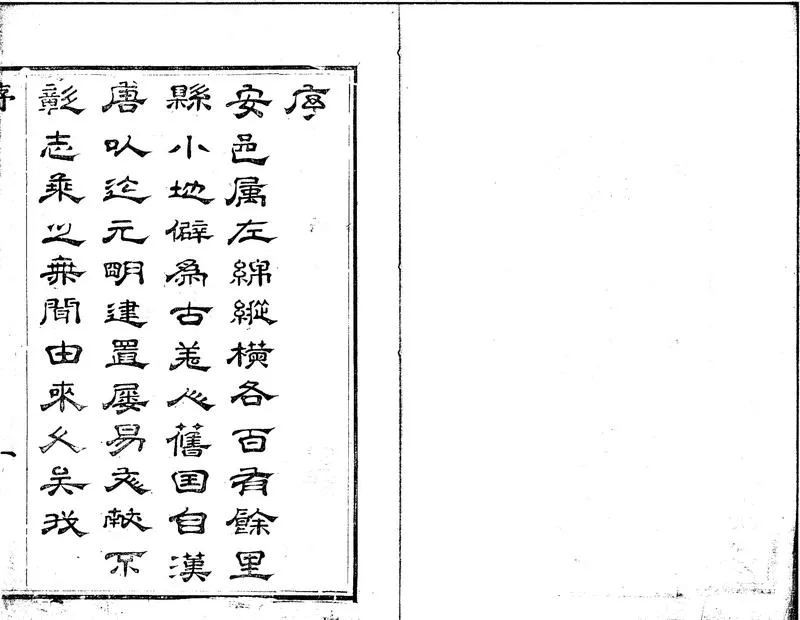 序
安邑属左綿縱橫各百有餘里
縣小地僻為古羌人舊国自漢
唐以迄元明建置屢易文献不
彰志乘之無聞由來久矣我
序
一